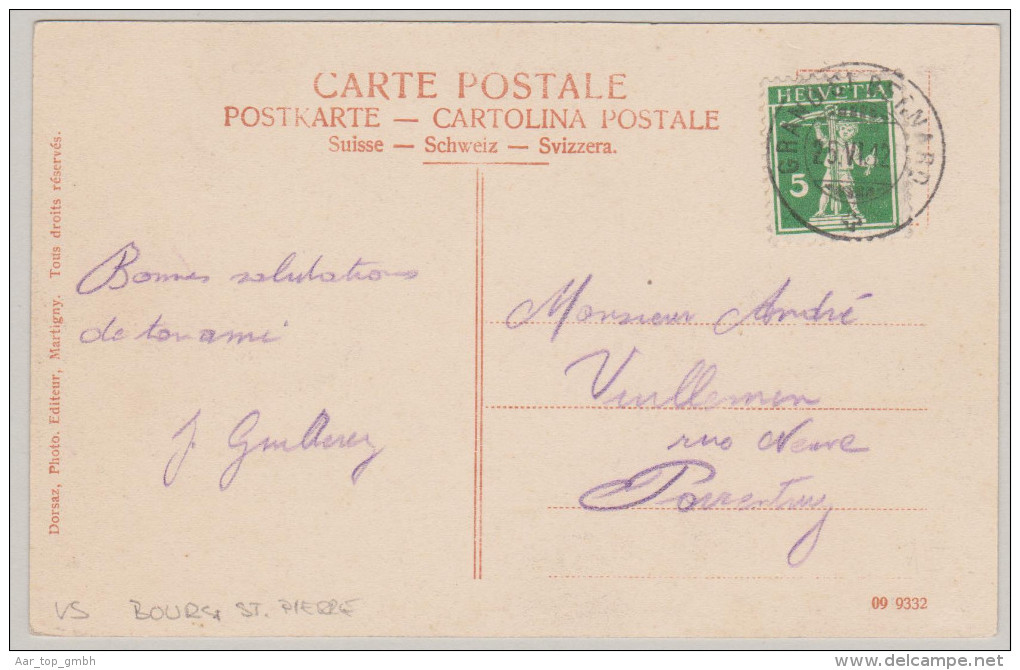 CARTE POSTALE
POSTKARTE — CARTOLINA POSTALE
Suisse — Schweiz — Svizzera.
HELVETIA
5
GRAND ST BERNARD
VI.12
Dorsaz, Photo. Editeur, Martigny. Tous droits réservés.
Bonnes salutations
de ton ami
J.
Monsieur André
Vuillemin
rue Neuve
Porrentruy
VS BOURG ST. PIERRE
09 9332
Aar_top_gmbh
delcampe.net